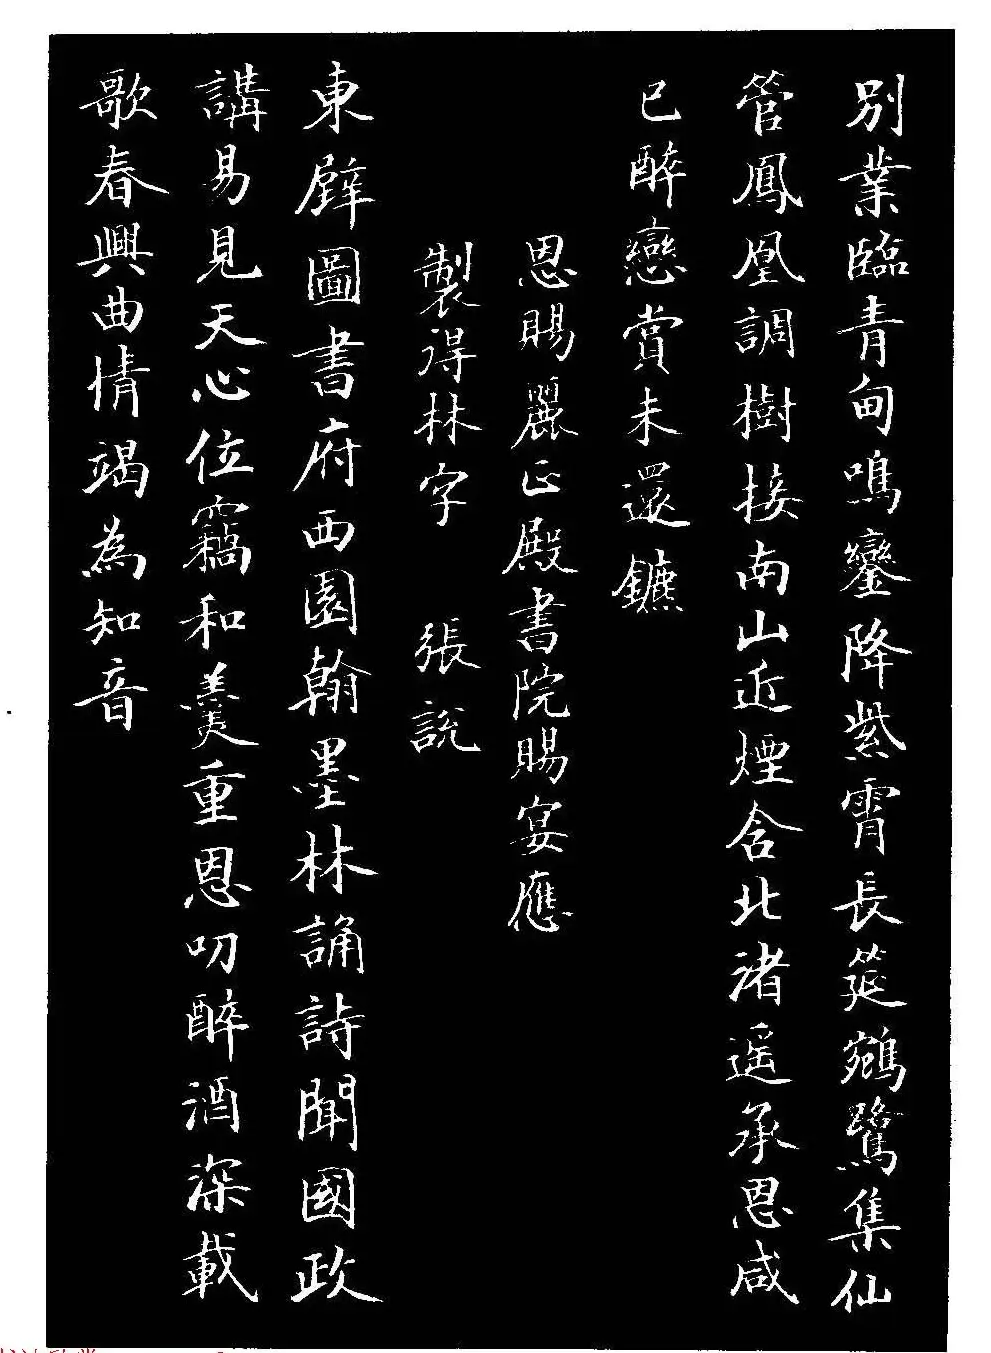 別業臨青甸鳴鑾降紫霄長筵鵷鷺集仙
管鳳凰調樹接南山近煙含北渚遥承恩咸
已醉戀賞未還鑣
恩賜麗正殿書院賜宴應
製得林字 張説
東壁圖書府西園翰墨林誦詩聞國政
講易見天心位竊和羹重恩叨醉酒深載
歌春興曲情竭為知音